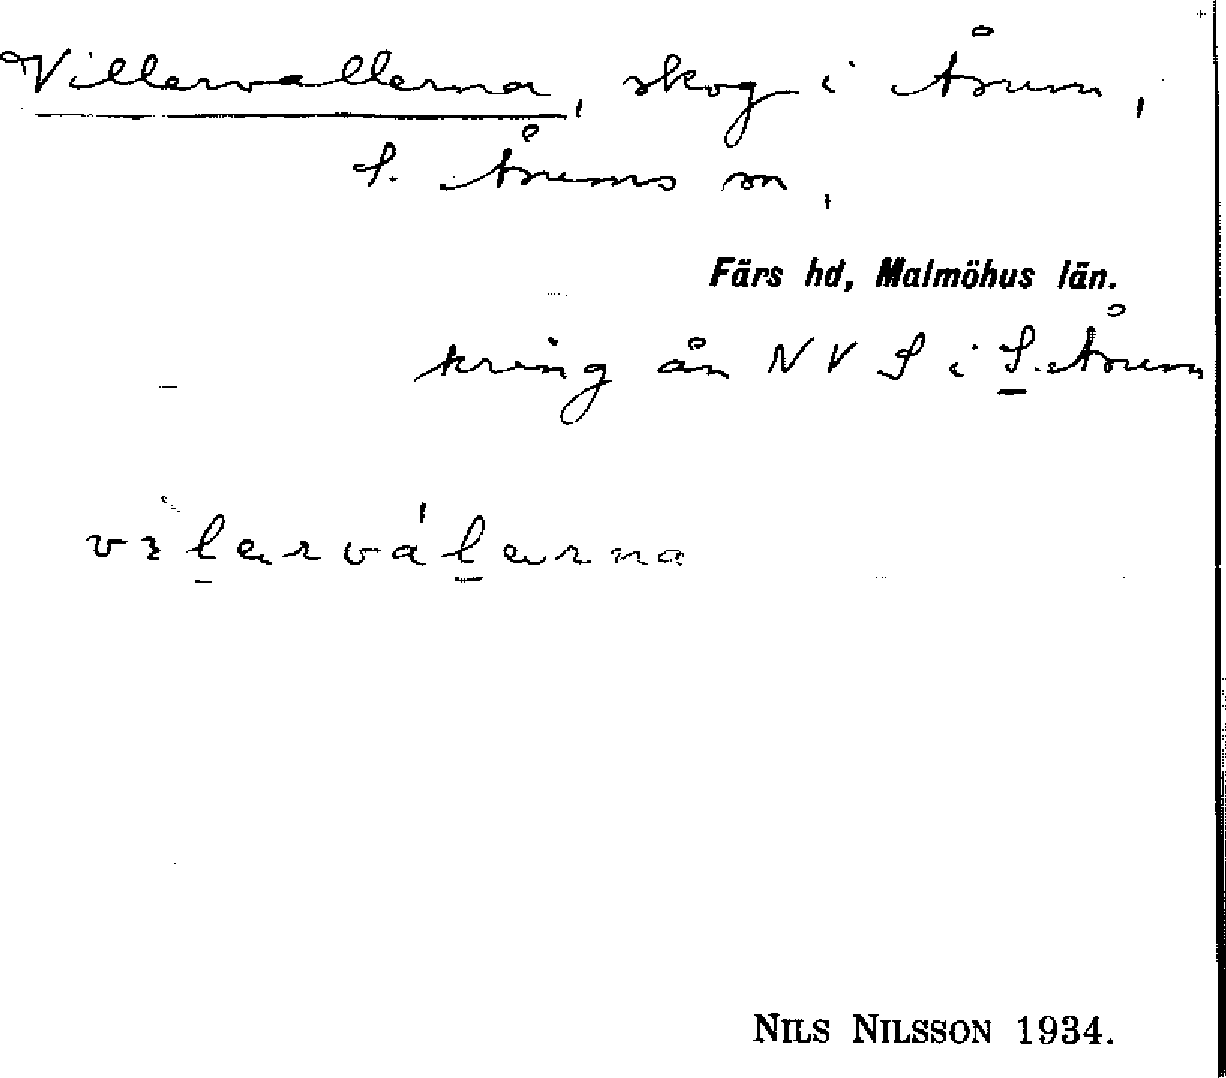 Villervallerna, skog i Åsum,
S. Åsums sn,
Färs hd, Malmöhus län.
kring ån NV S i S. Åsum
NILS NILSSON 1934.